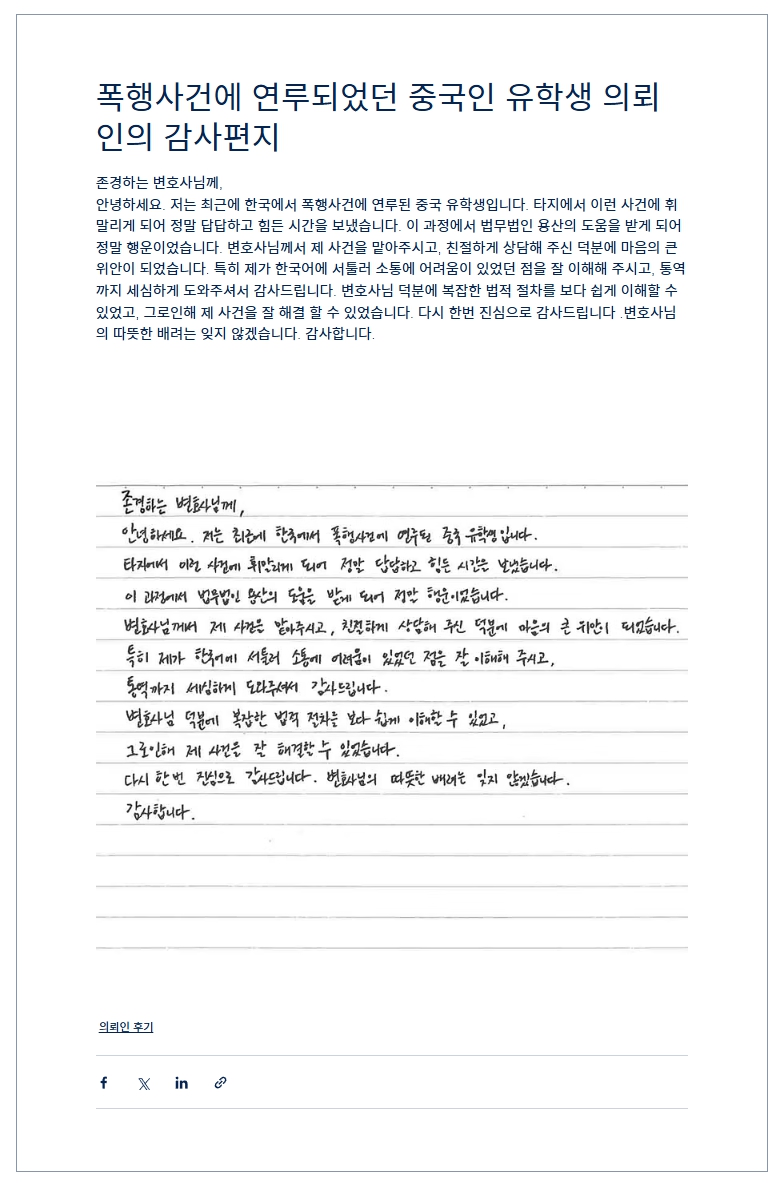 폭행사건에 연루되었던 중국인 유학생 의뢰
인의 감사편지
존경하는 변호사님께,
안녕하세요. 저는 최근에 한국에서 폭행사건에 연루된 중국 유학생입니다. 타지에서 이런 사건에 휘
말리게 되어 정말 답답하고 힘든 시간을 보냈습니다. 이 과정에서 법무법인 용산의 도움을 받게 되어
정말 행운이었습니다. 변호사님께서 제 사건을 맡아주시고, 친절하게 상담해 주신 덕분에 마음의 큰
위안이 되었습니다. 특히 제가 한국어에 서툴러 소통에 어려움이 있었던 점을 잘 이해해 주시고, 통역
까지 세심하게 도와주셔서 감사드립니다. 변호사님 덕분에 복잡한 법적 절차를 보다 쉽게 이해할 수
있었고, 그로인해 제 사건을 잘 해결 할 수 있었습니다. 다시 한번 진심으로 감사드립니다 .변호사님
의 따뜻한 배려는 잊지 않겠습니다. 감사합니다.
존경하는 변호사님께,
안녕하세요. 저는 최근에 한국에서 폭행사건에 연루된 중국 유학생입니다.
타지에서 이런 사건에 휘말리게 되어 정말 답답하고 힘든 시간을 보냈습니다.
이 과정에서 법무법인 용산의 도움을 받게 되어 정말 행운이었습니다.
변호사님께서 제 사건을 맡아주시고, 친절하게 상담해 주신 덕분에 마음의 큰 위안이 되었습니다.
특히 제가 한국어에 서툴러 소통에 어려움이 있었던 점을 잘 이해해 주시고,
통역까지 세심하게 도와주셔서 감사드립니다.
변호사님 덕분에 복잡한 법적 절차를 보다 쉽게 이해할 수 있었고,
그로인해 제 사건을 잘 해결할 수 있었습니다.
다시 한번 진심으로 감사드립니다. 변호사님의 따뜻한 배려는 잊지 않겠습니다.
감사합니다.
의뢰인 후기